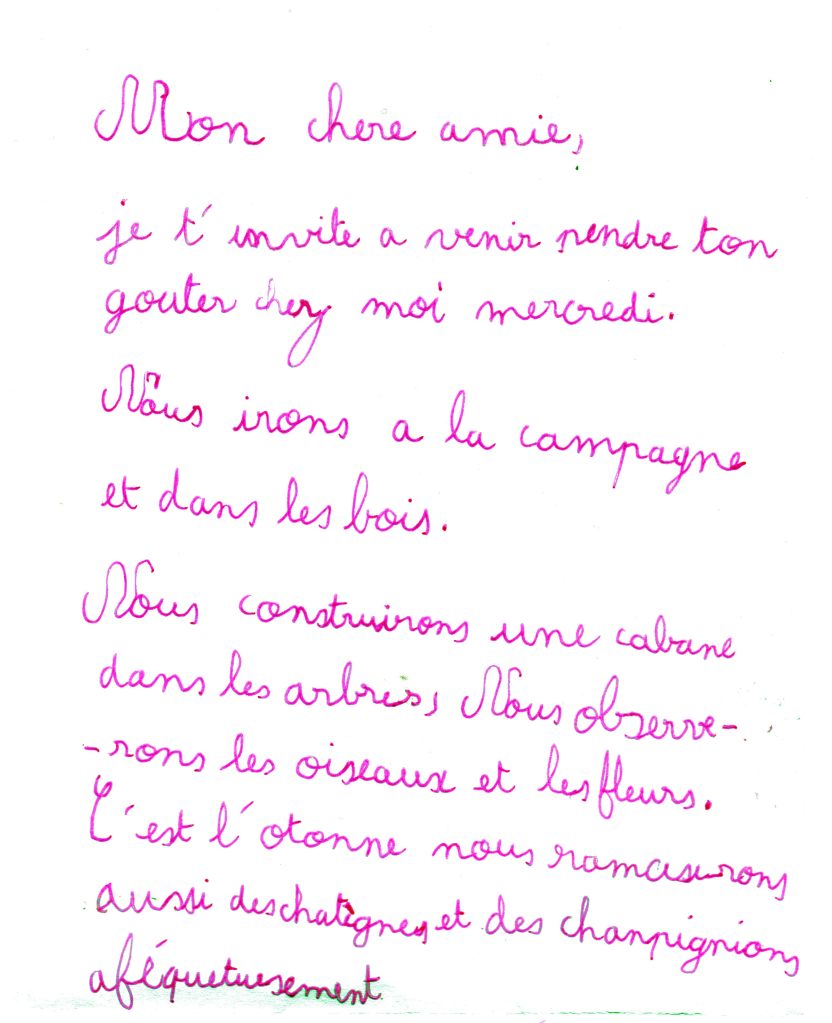 Mon chere amie,
je t'invite a venir pendre ton
gouter chez moi mercredi.
Nous irons a la campagne
et dans les bois.
Nous construirons une cabane
dans les arbres, Nous observe-
-rons les oiseaux et les fleurs.
C'est l'otonne nous ramasurons
aussi des chatègnes et des chanpignions
aféquetuesement